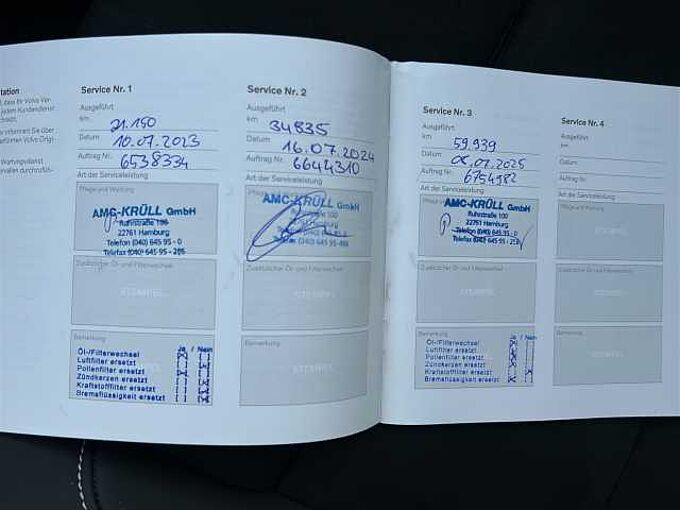 tation
, dass Ihr Volvo Ver-
Service Nr. 1
Ausgeführt
km 21.150
Datum 10.07.2023
Auftrag Nr. 6538334
Art der Serviceleistung
Pflege und Wartung
AMC-KRÜLL GmbH
Ruhrstraße
22761 Hamburg
Telefon (040) 645 95 - 0
Telefax (040) 645 95 -
Zusätzlicher Öl- und Filterwechsel
STEMPEL
Bemerkung
Ja / Nein
Öl-/Filterwechsel
Luftfilter ersetzt
Pollenfilter ersetzt
Zündkerzen ersetzt
Kraftstofffilter ersetzt
Bremsflüssigkeit ersetzt
Service Nr. 2
Ausgeführt
km 34835
Datum 16.07.2024
Auftrag Nr. 6644310
Art der Serviceleistung
AMC-KRÜLL GmbH
Ruhrstraße 100
Zusätzlicher Öl- und Filterwechsel
STEMPEL
Bemerkung
STEMPEL
Service Nr. 3
Ausgeführt
km 59.939
Datum 07.2025
Auftrag Nr. 6754982
Art der Serviceleistung
AMC-KRÜLL GmbH
Ruhrstraße 100
22761 Hamburg
Telefon (040) 645 95 - 0
Telefax (040) 645 95 -
Zusätzlicher Öl- und Filterwechsel
STEMPEL
Bemerkung
Ja / Nein
Öl-/Filterwechsel
Luftfilter ersetzt
Pollenfilter ersetzt
Zündkerzen ersetzt
Kraftstofffilter ersetzt
Bremsflüssigkeit ersetzt
Service Nr. 4
Ausgeführt
km
Datum
Auftrag Nr.
Art der Serviceleistung
Pflege und Wartung
STEMPEL
Zusätzlicher Öl- und Filterwechsel
STEMPEL
Bemerkung
STEMPEL